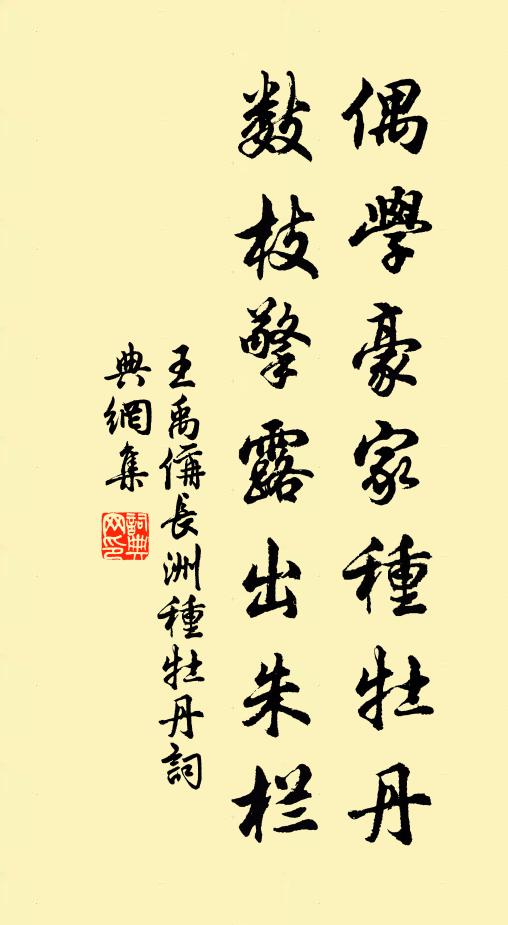 偶學豪家種牡丹
数枝擎露出朱栏
王禹偁長洲種牡丹詞
典網集
詞典网印